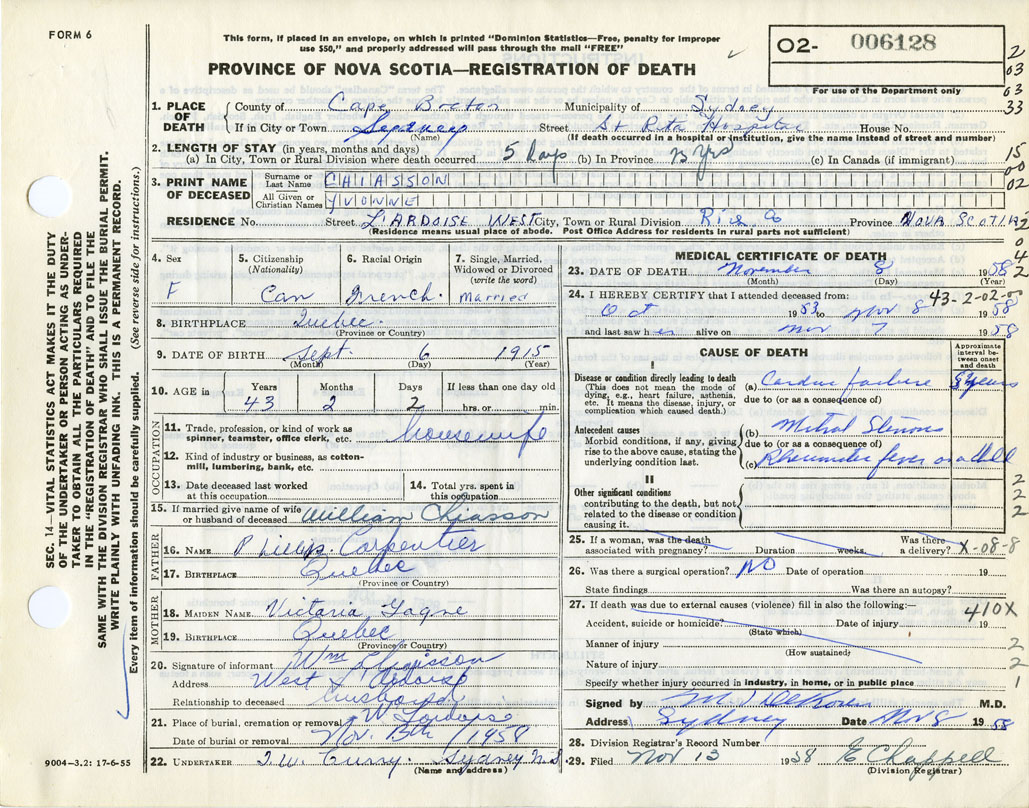 FORM 6
This form, if placed in an envelope, on which is printed "Dominion Statistics—Free, penalty for improper
use $50," and properly addressed will pass through the mail "FREE"
PROVINCE OF NOVA SCOTIA—REGISTRATION OF DEATH
O2- 006128
For use of the Department only
2
03
63
33
15
00
02
1. PLACE OF DEATH
County of Cape Breton Municipality of Sydney
If in City or Town Sydney Street St Rita Hospital House No.
(Name) (If death occurred in a hospital or institution, give the name instead of street and number)
2. LENGTH OF STAY (in years, months and days)
(a) In City, Town or Rural Division where death occurred 5 Days (b) In Province yrs (c) In Canada (if immigrant)
3. PRINT NAME OF DECEASED
Surname or Last Name CHIASSON
All Given or Christian Names YVONNE
RESIDENCE No. Street L'ARDOISE WEST City, Town or Rural Division Rich Co Province NOVA SCOTIA
(Residence means usual place of abode. Post Office Address for residents in rural parts not sufficient)
4. Sex
F
5. Citizenship
(Nationality)
Can
6. Racial Origin
French.
7. Single, Married, Widowed or Divorced
(write the word)
married
8. BIRTHPLACE Quebec.
(Province or Country)
9. DATE OF BIRTH Sept. 6 1915
(Month) (Day) (Year)
10. AGE in Years Months Days If less than one day old
43 2 2 hrs. or min.
OCCUPATION
11. Trade, profession, or kind of work as spinner, teamster, office clerk, etc. housewife
12. Kind of industry or business, as cotton-mill, lumbering, bank, etc.
13. Date deceased last worked at this occupation
14. Total yrs. spent in this occupation
15. If married give name of wife or husband of deceased William Chiasson
FATHER
16. NAME Phillip Carpentier
17. BIRTHPLACE Quebec
(Province or Country)
MOTHER
18. MAIDEN NAME Victoria Gagne
19. BIRTHPLACE Quebec
(Province or Country)
20. Signature of informant Wm Chiasson
Address West L'Ardoise
Relationship to deceased husband
21. Place of burial, cremation or removal W. Lardoise
Date of burial or removal Nov. 13th / 1958
22. UNDERTAKER T.W. Curry. Sydney N.S
(Name and address)
MEDICAL CERTIFICATE OF DEATH
23. DATE OF DEATH November 8 1958
(Month) (Day) (Year)
43-2-02-
24. I HEREBY CERTIFY that I attended deceased from:
Oct 1953 to Nov 8 1958
and last saw her alive on Nov 7 1958
CAUSE OF DEATH
Approximate interval between onset and death
I
Disease or condition directly leading to death
(This does not mean the mode of dying, e.g., heart failure, asthenia, etc. It means the disease, injury, or complication which caused death.)
(a) Cardiac failure years
due to (or as a consequence of)
Antecedent causes
Morbid conditions, if any, giving rise to the above cause, stating the underlying condition last.
(b) Mitral Stenosis
due to (or as a consequence of)
(c) Rheumatic fever as a child
II
Other significant conditions
contributing to the death, but not related to the disease or condition causing it.
2
2
2
25. If a woman, was the death associated with pregnancy? Duration weeks. Was there a delivery? X-08-8
26. Was there a surgical operation? NO Date of operation 19
State findings Was there an autopsy?
27. If death was due to external causes (violence) fill in also the following:— 410X
Accident, suicide or homicide? Date of injury 19
(State which)
Manner of injury 2
(How sustained)
Nature of injury 2
Specify whether injury occurred in industry, in home, or in public place 1
Signed by M.D.
Address Sydney Date Nov 8 1958
28. Division Registrar's Record Number
29. Filed Nov 13 1958 E Chappell
(Division Registrar)
9004—3.2: 17-6-55
SEC. 14—VITAL STATISTICS ACT MAKES IT THE DUTY
OF THE UNDERTAKER OR PERSON ACTING AS UNDER-
TAKER TO OBTAIN ALL THE PARTICULARS REQUIRED
IN THE "REGISTRATION OF DEATH" AND TO FILE THE
SAME WITH THE DIVISION REGISTRAR WHO SHALL ISSUE THE BURIAL PERMIT.
WRITE PLAINLY WITH UNFADING INK. THIS IS A PERMANENT RECORD.
Every item of information should be carefully supplied. (See reverse side for instructions.)